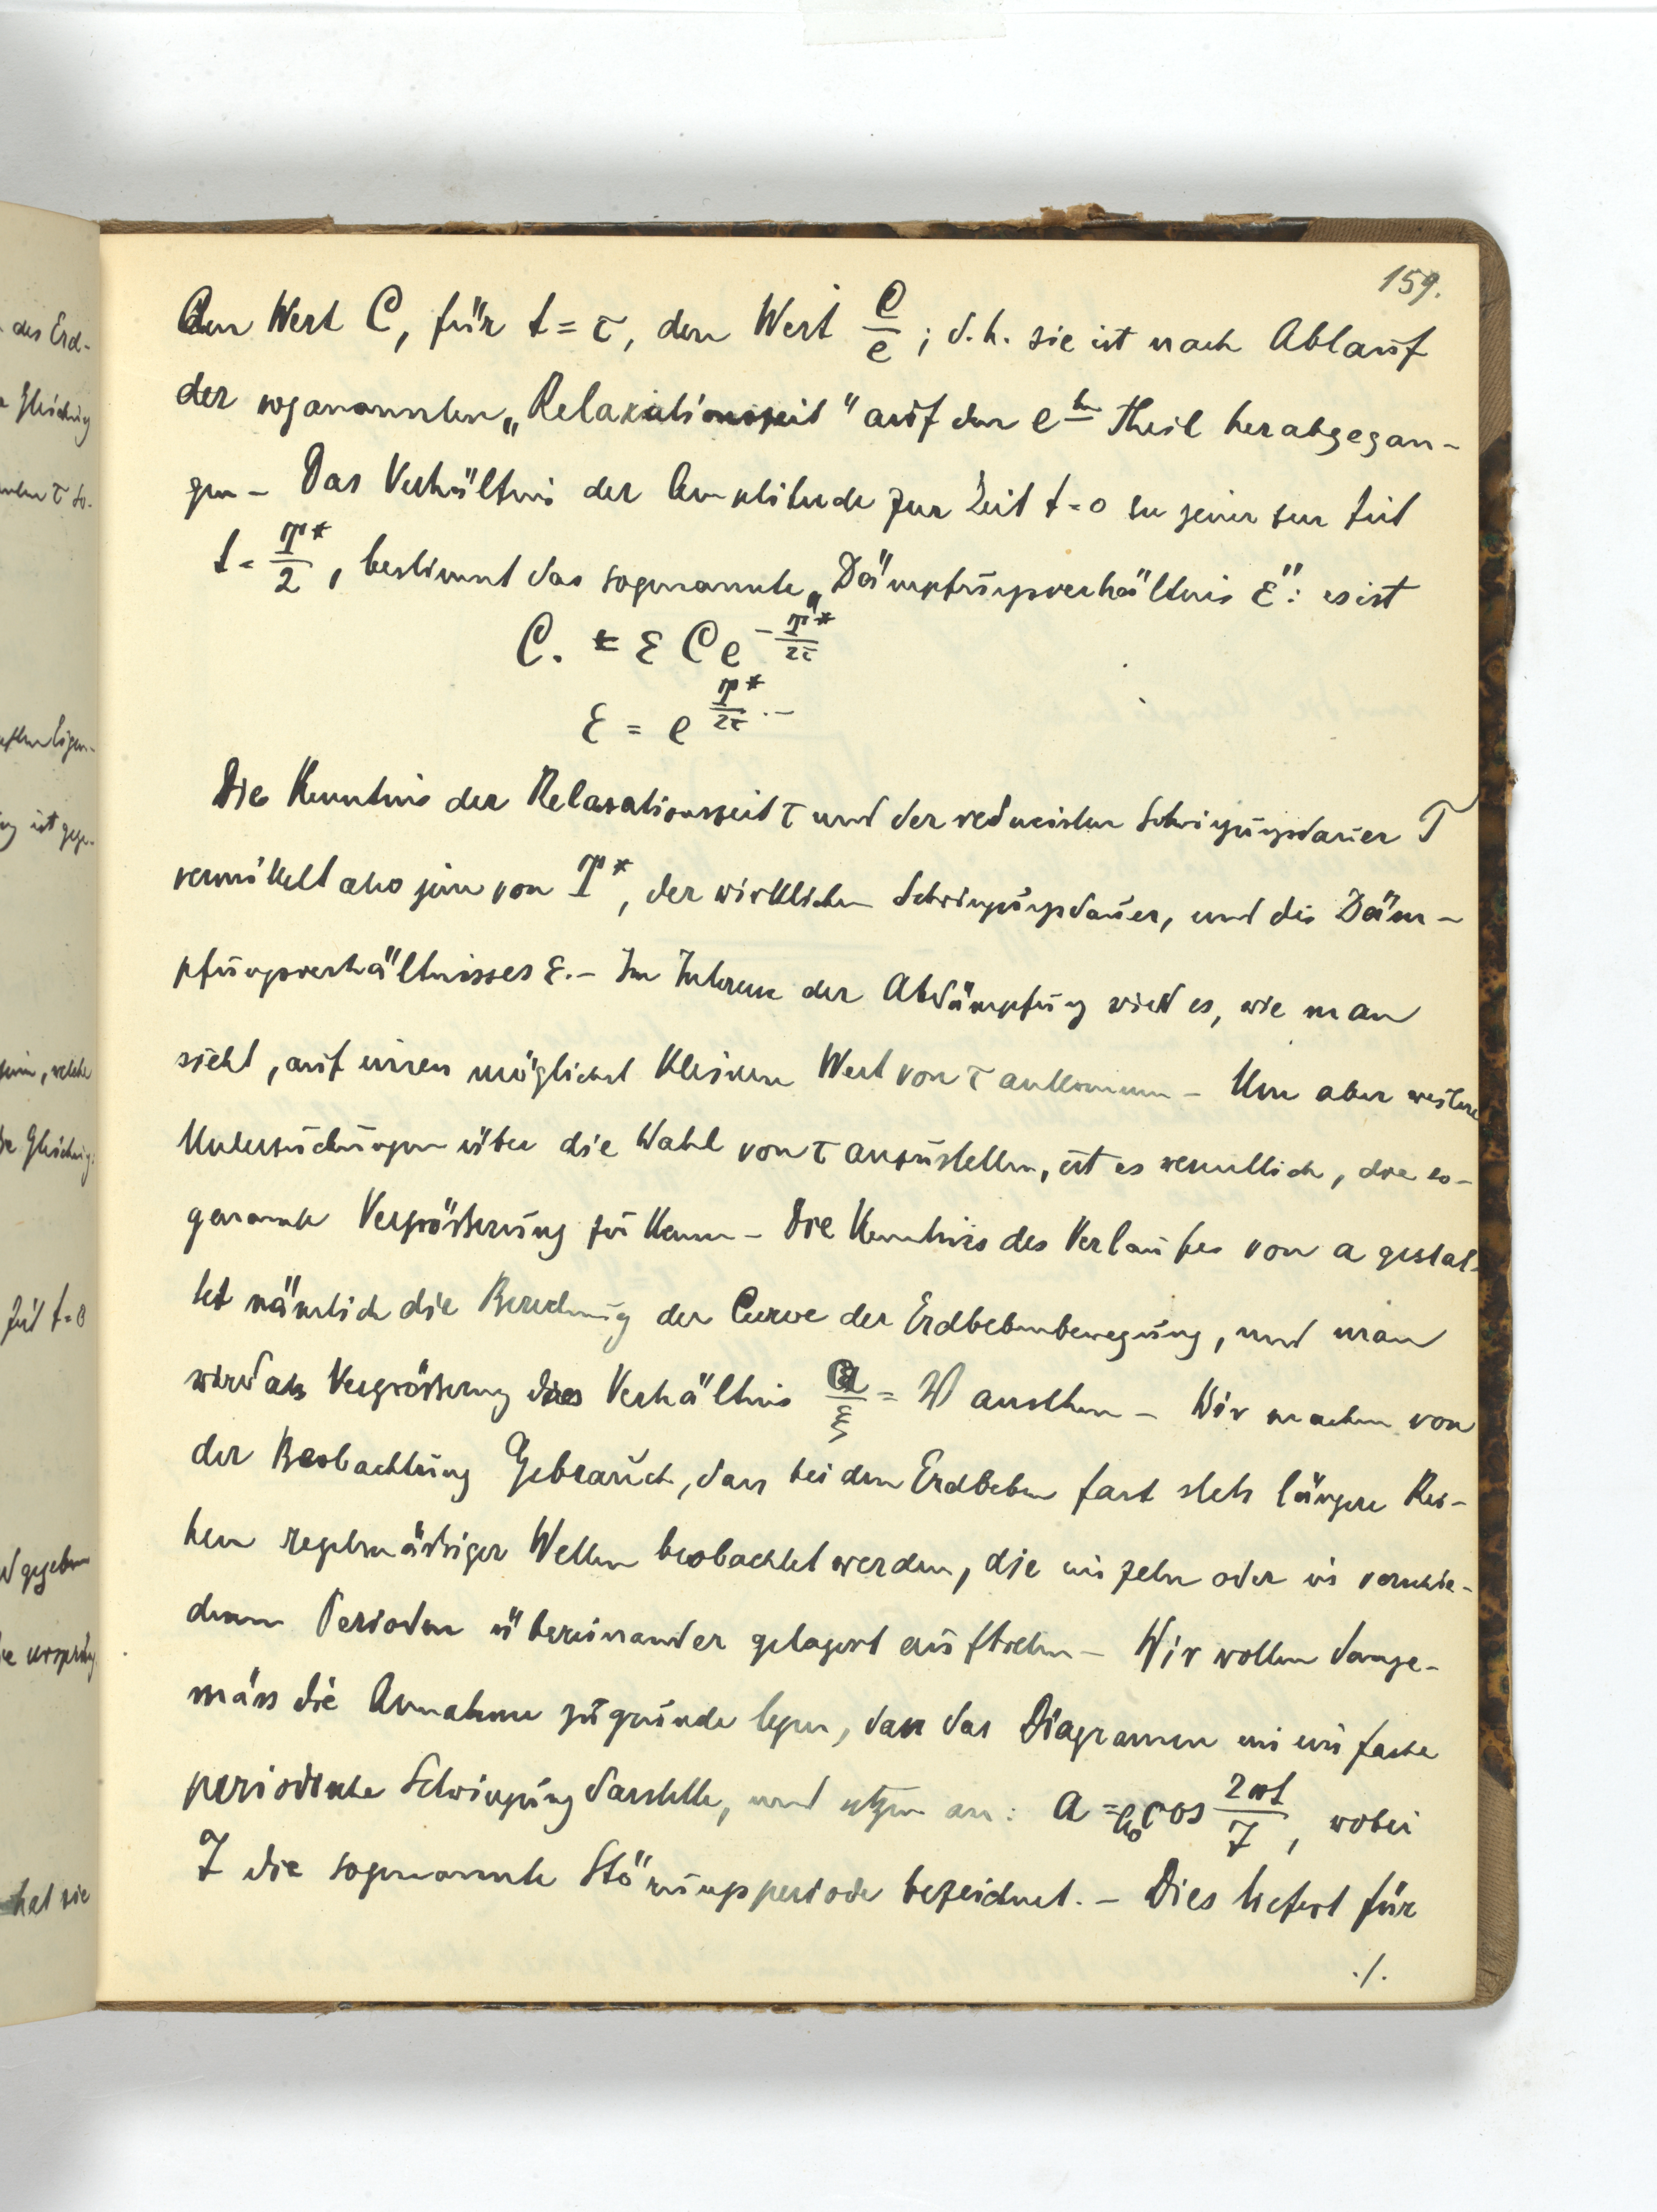 159.
den Wert C, für t = τ, den Wert C/e ; d. h. sie ist nach Ablauf
der sogenannten „Relaxationszeit" auf den e ten Theil herabgegan-
gen – Das Verhältnis der Amplitude zur Zeit t=0 zu jener zur Zeit
t = T*/2, bestimmt das sogenannte „Dämpfungsverhältnis ε": es ist
C. = ε C e^(-T*/2τ)
ε = e^(T*/2τ) .–
Die Kenntnis der Relaxationszeit τ und der reducirten Schwingungsdauer T
vermittelt also jene von T*, der wirklichen Schwingungsdauer, und die Däm-
pfungsverhältnisses ε.– Im Interesse der Abdämpfung wird es, wie man
sieht, auf einen möglichst kleinen Wert von τ ankommen – Um aber weitere
Untersuchungen über die Wahl von τ anzustellen, ist es wesentlich, die so-
genannte Vergrösserung zu kennen – Die Kenntnis des Verlaufes von a gestat-
tet nämlich die Berechnung der Curve der Erdbebenbewegung, und man
wird als Vergrösserung das Verhältnis a/ξ = W ansehen – Wir machen von
der Beobachtung Gebrauch, dass bei den Erdbeben fast stets längere Rei-
hen regelmässiger Wellen beobachtet werden, die einzeln oder in verschie-
denen Perioden übereinander gelagert auftreten – Wir wollen demge-
mäss die Annahme zugrunde legen, dass das Diagramm eine einfache
periodische Schwingung darstelle, und setzen an: a = a₀ cos 2πt/T, wobei
T die sogenannte Störungsperiode bezeichnet. – Dies liefert für
./.
des Erd-
Gleichung
τ so-
Eigen-
ist gege-
, welche
Gleichung
Zeit t=0
gegeben
ursprüng
hat sie